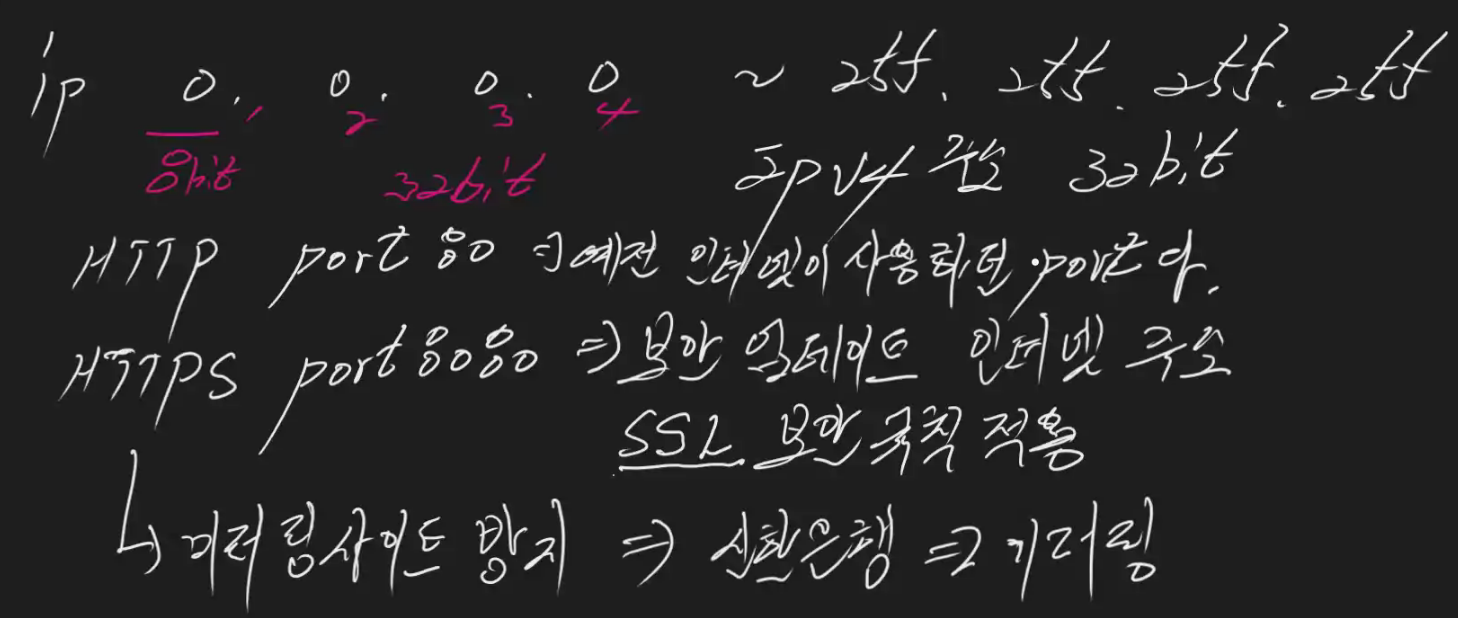 ip 0. 0. 0. 0 ~ 255. 255. 255. 255
1 2 3 4
8bit 32bit IPv4 주소 32bit
HTTP port 80 => 예전 인터넷이 사용하던 port다.
HTTPS port 8080 => 보안 업데이트 인터넷 주소
SSL 보안 규칙 적용
↳ 미러링사이트 방지 => 신한은행 => 미러링